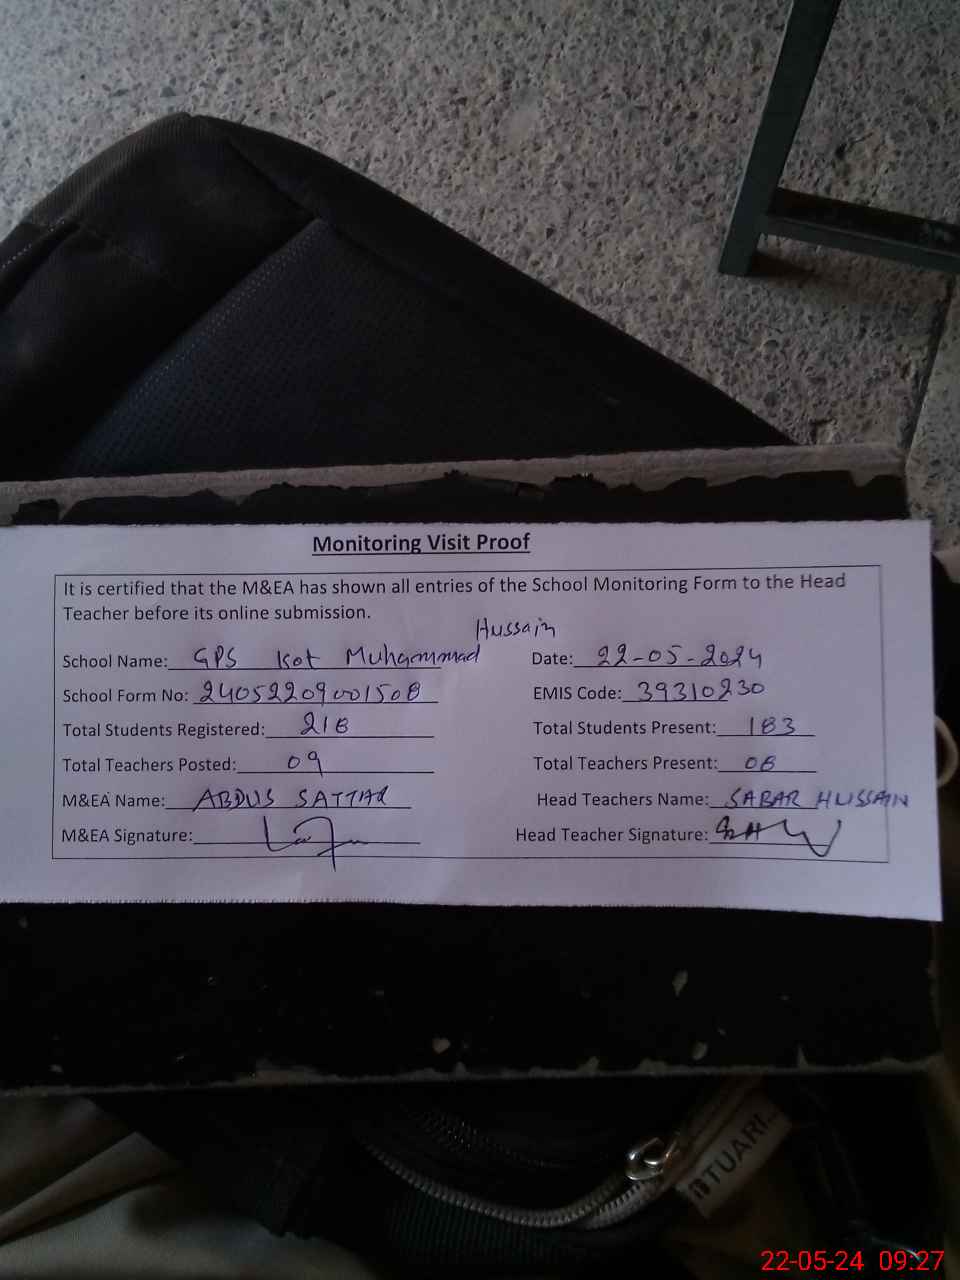 Monitoring Visit Proof
It is certified that the M&EA has shown all entries of the School Monitoring Form to the Head
Teacher before its online submission.
Hussain
School Name: GPS Kot Muhammad Date: 22-05-2024
School Form No: 24052209001508 EMIS Code: 39310230
Total Students Registered: 218 Total Students Present: 183
Total Teachers Posted: 09 Total Teachers Present: 08
M&EA Name: ABDUS SATTAR Head Teachers Name: SABAR HUSSAIN
M&EA Signature: Head Teacher Signature:
TUARI
22-05-24 09:27